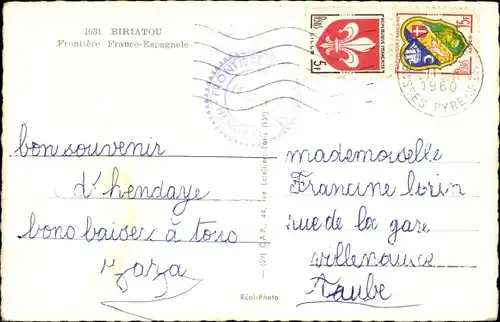 1631 BIRIATOU
Frontière Franco-Espagnole
FRONTIERE
5F
POSTES
REPUBLIQUE FRANÇAISE
LILLE
5F
1960
PYRENEES
bon souvenir
d'hendaye
bons baisers à tous
zaza
mademoiselle
Francine
rue de la gare
villenauxe
aube
(59) C.A.P., 44, rue Letellier, Paris (15e)
Réal-Photo